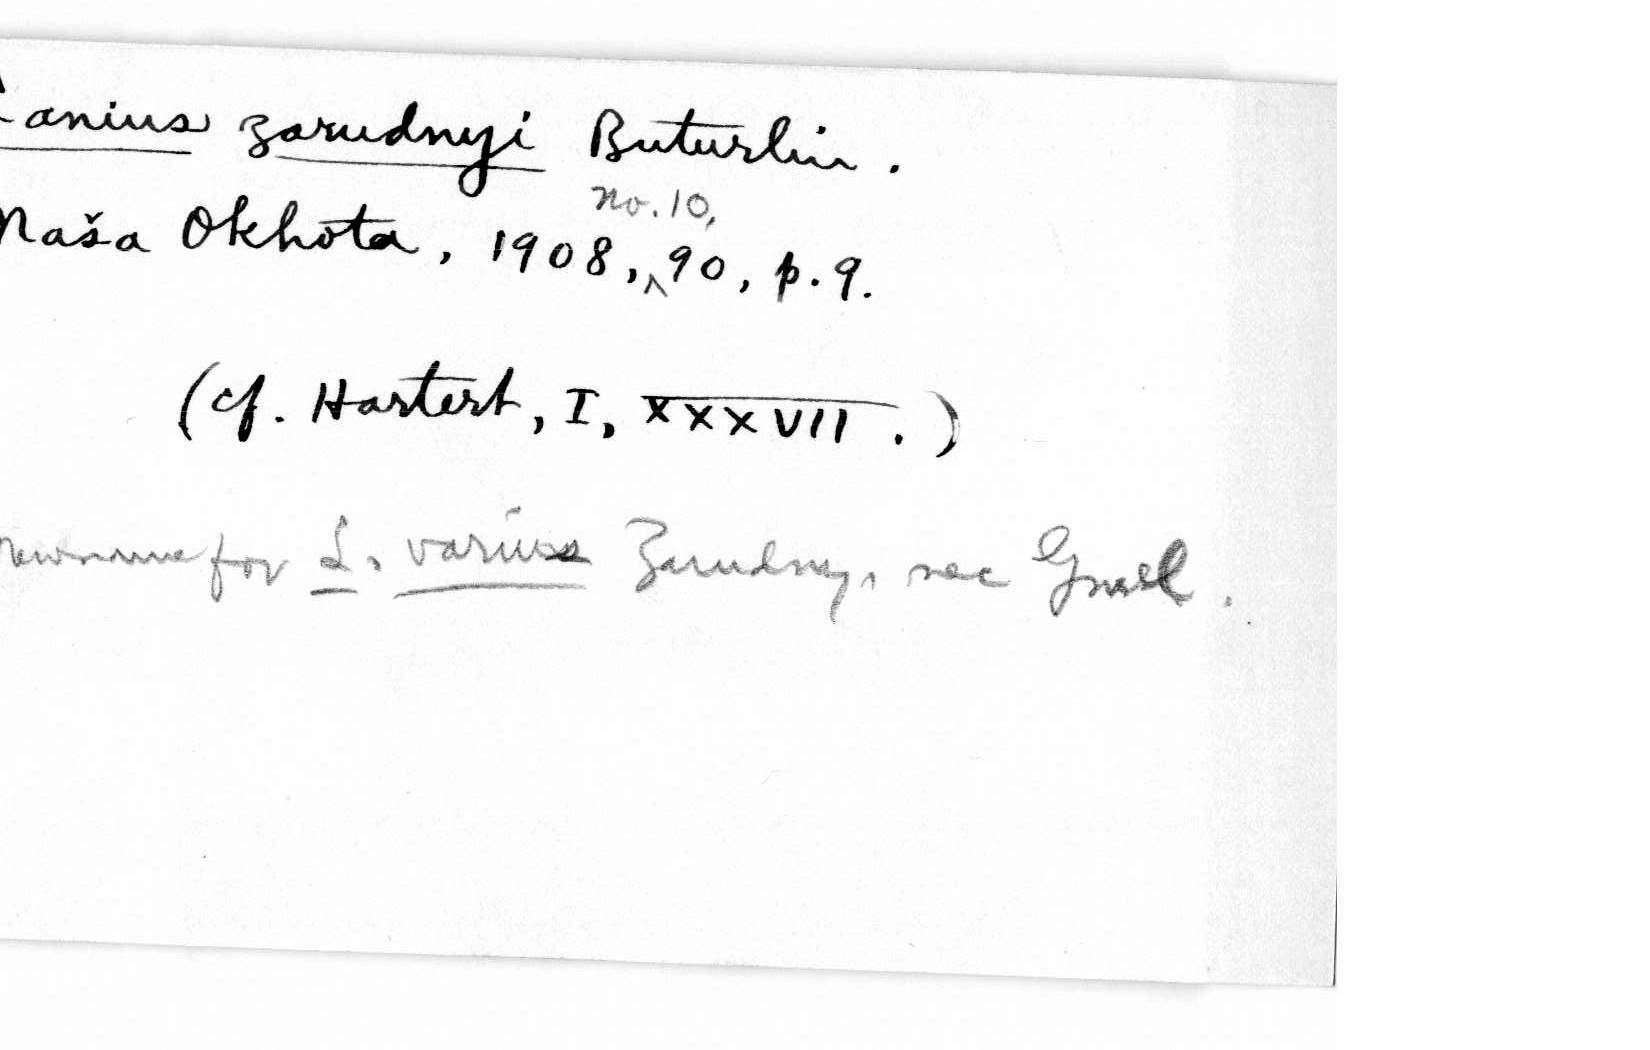 Lanius zarudnyi Buturlin.
No. 10,
Naša Okhota, 1908, ^ 90, p. 9.
(cf. Hartert, I, XXXVII.)
New name for L. varius Zarudny, nec Gmel.